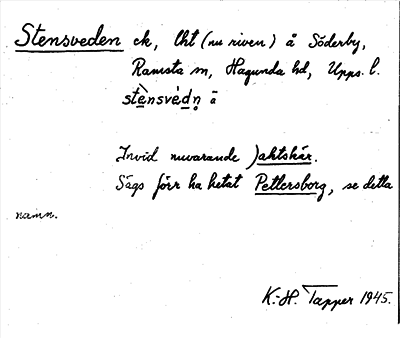 Stensveden ck, lht (nu riven) å Söderby,
Ramsta sn, Hagunda hd, Upps. l.
stènsvédn̥ ā
Invid nuvarande Jaktskär.
Sägs förr ha hetat Pettersborg, se detta
namn.
K.-H. Tapper 1945.